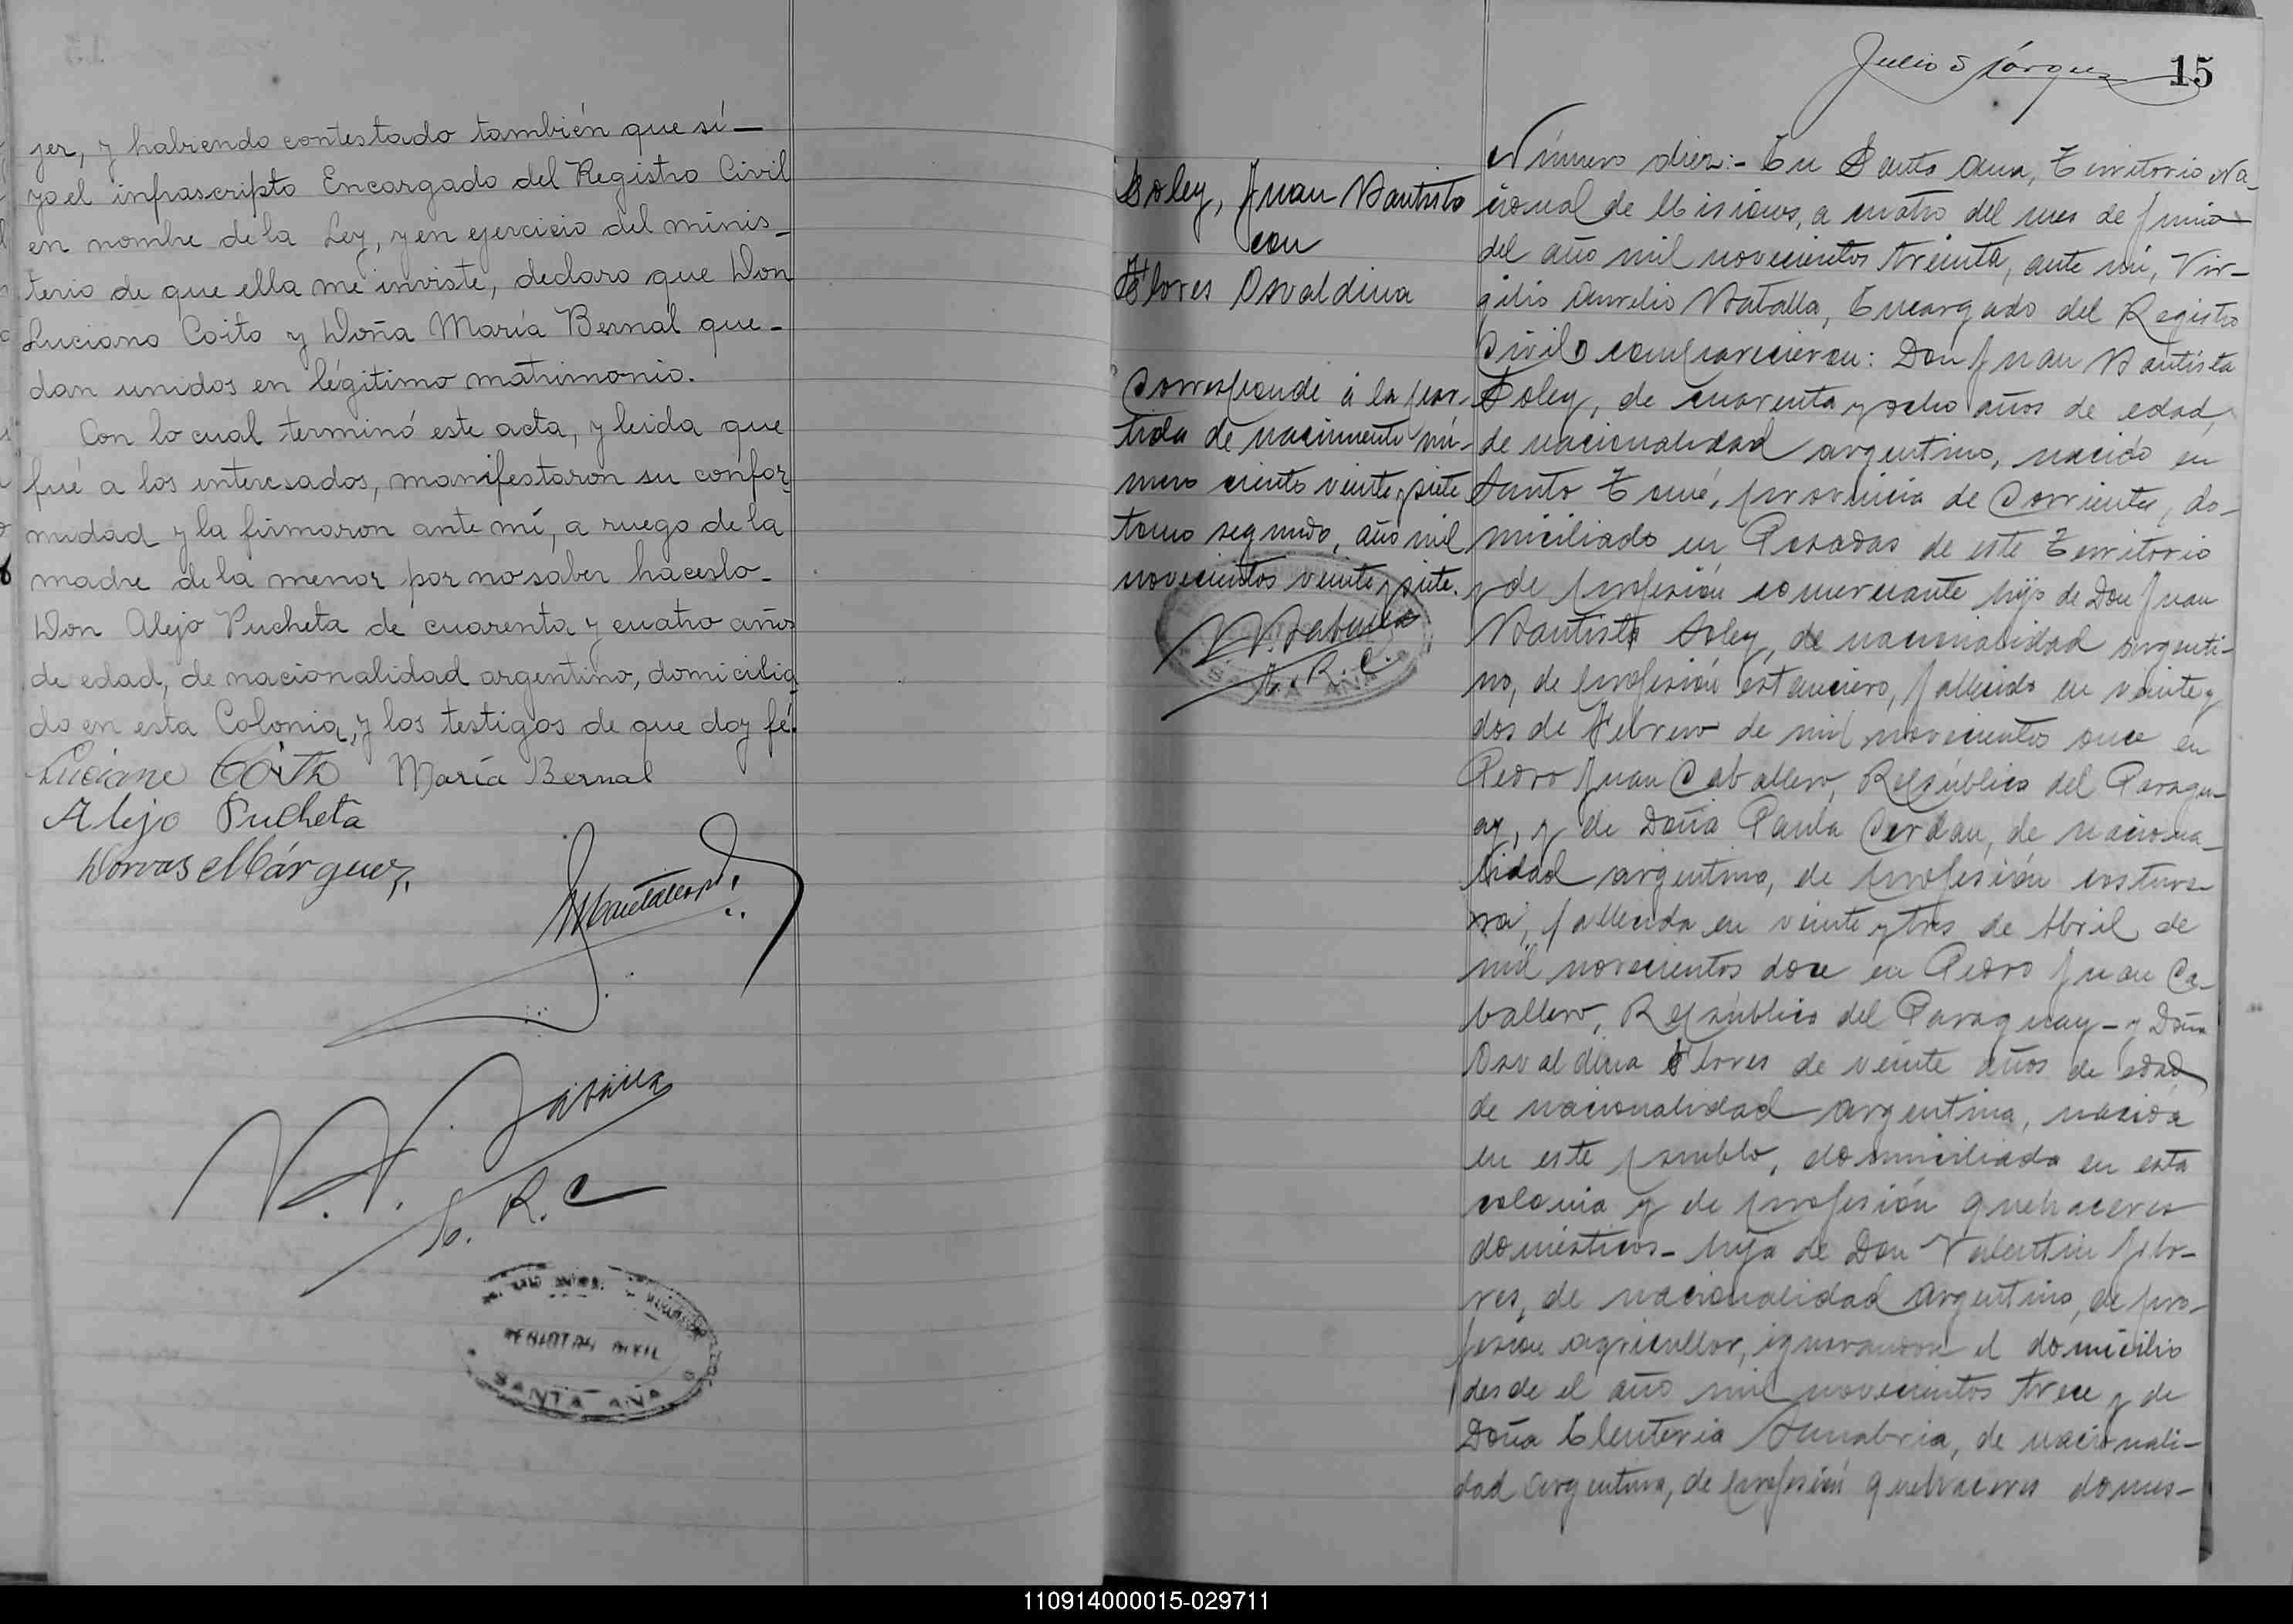 jer, y habiendo contestado también que sí—
yo el infrascripto Encargado del Registro Civil
en nombre de la Ley, y en ejercicio del minis-
terio de que ella me inviste, declaro que Don
Luciano Coito y Doña María Bernal que-
dan unidos en légitimo matrimonio.
Con lo cual terminó este acta, y leida que
fué a los interesados, manifestaron su confor-
midad y la firmaron ante mí, a ruego de la
madre de la menor por no saber hacerlo-
Don Alejo Pucheta de cuarenta y cuatro años
de edad, de nacionalidad argentino, domicilia
do en esta Colonia, y los testigos de que doy fé.
Luciano Coito María Bernal
Alejo Pucheta
Dorvas Márquez
E. R. C
REGISTRO CIVIL
SANTA ANA
15
Soley, Juan Bautista
con
Flores Osvaldina
Corresponde á la par-
tida de nacimiento nú-
mero ciento veinte y siete
tomo segundo, año mil
novecientos veinte y siete.
E. R. C.
SANTA ANA
Número diez:- En Santa Ana, Territorio Na-
cional de Misiones, a cuatro del mes de Junio
del año mil novecientos treinta, ante mi, Vir-
gilio Aurelio Batalla, Encargado del Registro
Civil comparecieron: Don Juan Bautista
Soley, de cuarenta y ocho años de edad,
de nacionalidad argentino, nacido en
Santo Tomé, provincia de Corrientes, do-
miciliado en Posadas de este Territorio
y de profesión comerciante hijo de Don Juan
Bautista Soley, de nacionalidad argenti-
no, de profesión estanciero, fallecido en veinte y
dos de Febrero de mil novecientos once en
Pedro Juan Caballero, República del Paragu-
ay, y de Doña Paula Cerdan, de naciona-
lidad argentina, de profesión costure-
ra, fallecida en veinte y tres de Abril de
mil novecientos doce en Pedro Juan Ca-
ballero, República del Paraguay- y Doña
Osvaldina Flores de veinte años de edad
de nacionalidad argentina, nacida
en este pueblo, domiciliada en esta
colonia y de profesión quehaceres
domésticos- hija de Don Valentin Flo-
res, de nacionalidad argentino, de pro-
fesión agricultor, ignorandose el domicilio
desde el año mil novecientos trece y de
Doña Eleuteria Sanabria, de nacionali-
dad argentina, de profesión quehaceres domes-
110914000015-029711